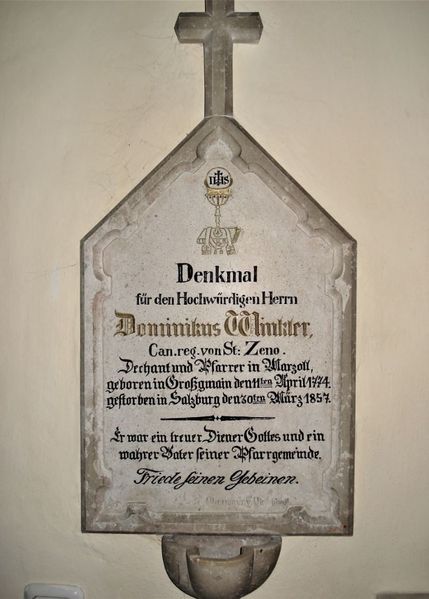 IHS
Denkmal
für den Hochwürdigen Herrn
Dominikus Winkler,
Can. reg. von St: Zeno.
Dechant und Pfarrer in Marzoll,
geboren in Großgmain den 11ten April 1774.
gestorben in Salzburg den 30ten März 1857.
Er war ein treuer Diener Gottes und ein
wahrer Vater seiner Pfarrgemeinde.
Friede seinen Gebeinen.